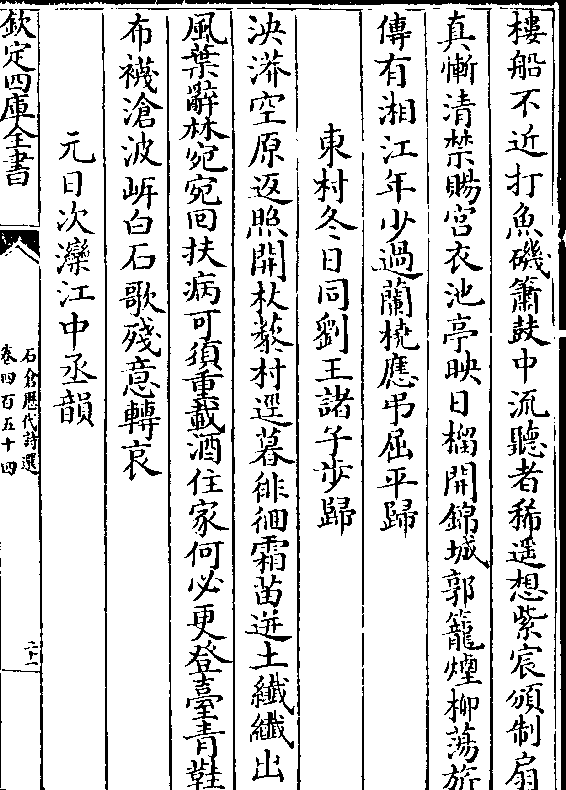 樓船不近打魚磯簫鼓中流聽者稀遥想紫宸頒制扇
真慚清禁賜宮衣池亭映日榴開錦城郭籠煙柳蕩旂
傳有湘江年少過蘭橈應弔屈平歸
東村冬日同劉王諸子步歸
泱漭空原返照開杖藜村逕暮徘徊霜苗迸土纖纖出
風葉辭林宛宛回扶病可須重載酒住家何必更登臺青鞋
布襪滄波㟁白石歌殘意轉哀
元日次灤江中丞韻
欽定四庫全書
石倉歷代詩選
卷四百五十四